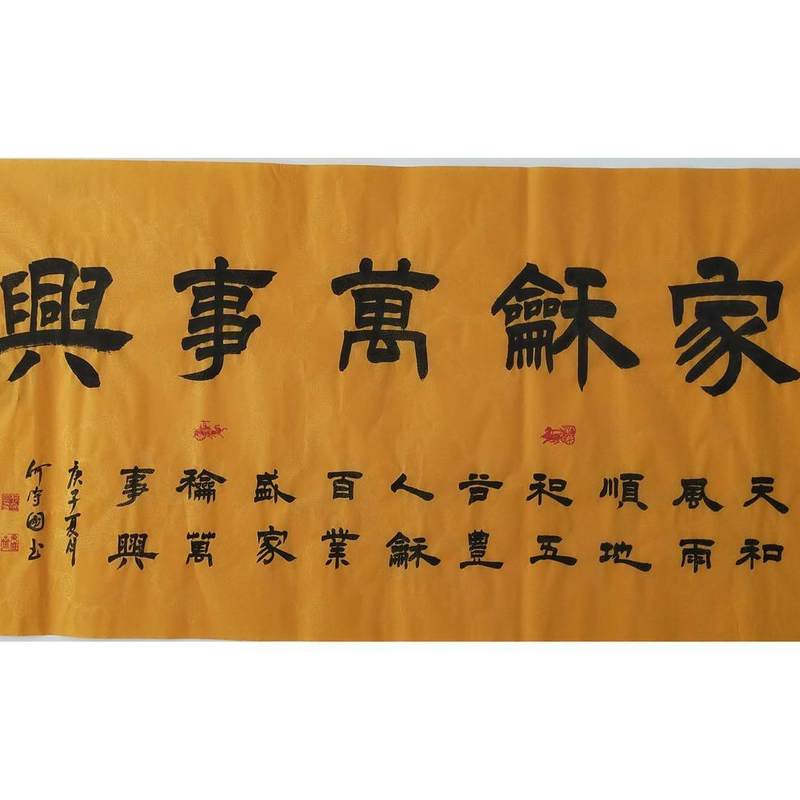 家龢萬事興
天和
風雨
順地
和五
谷豊
人龢
百業
盛家
龢萬
事興
庚子夏月
何國书